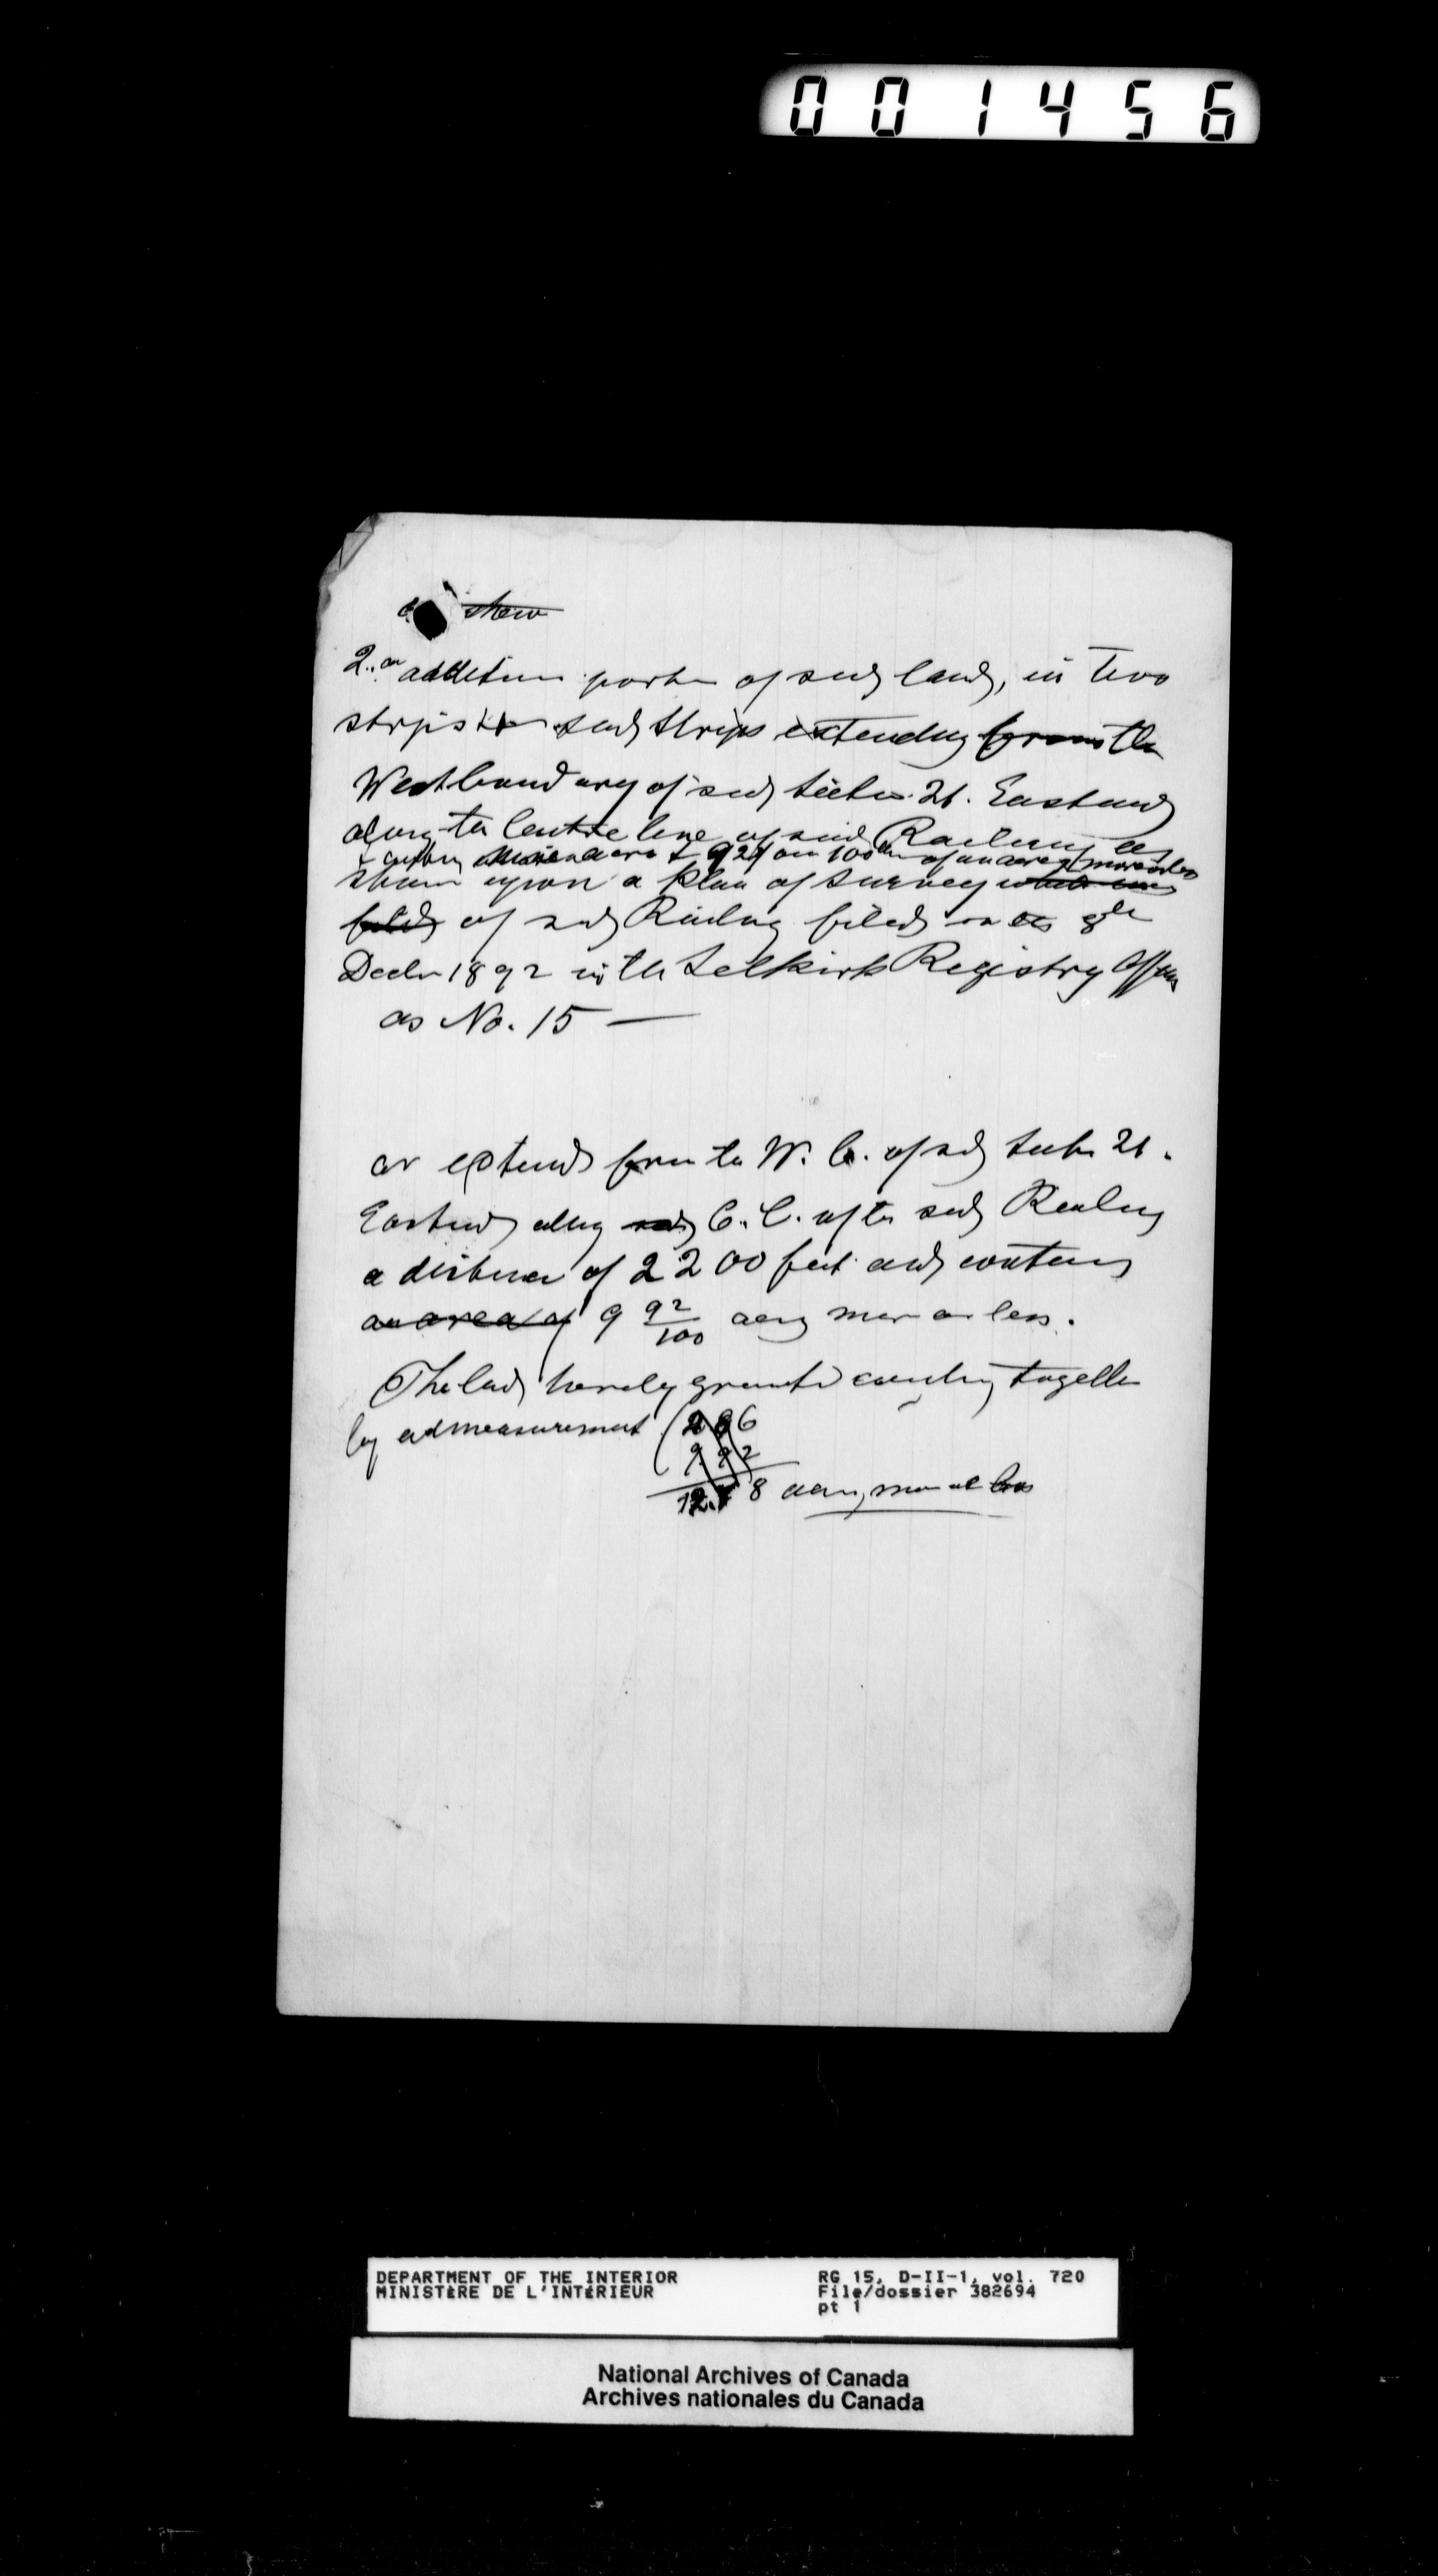 001456
shew
2. an addition portion of said land, in Two
strips said strips extending from the
West boundary of said Section 21. Eastward
along the Centre line of said Railway as
& 92 on 100 of an acre more or less
shewn upon a plan of survey
filed of said Railway filed on 8th
Decbr 1892 in the Selkirk Registry Office
as No. 15 —
or extends from the W. B. of said Section 21.
Eastward along said C. L. of the said Railway
a distance of 2200 feet and contains
an area of 9 92/100 acres more or less.
The land hereby granted together
by admeasurement (2 86
9.92
12.78 acres more or less
DEPARTMENT OF THE INTERIOR
MINISTÈRE DE L'INTÉRIEUR
RG 15, D-II-1, vol. 720
File/dossier 382694
pt 1
National Archives of Canada
Archives nationales du Canada